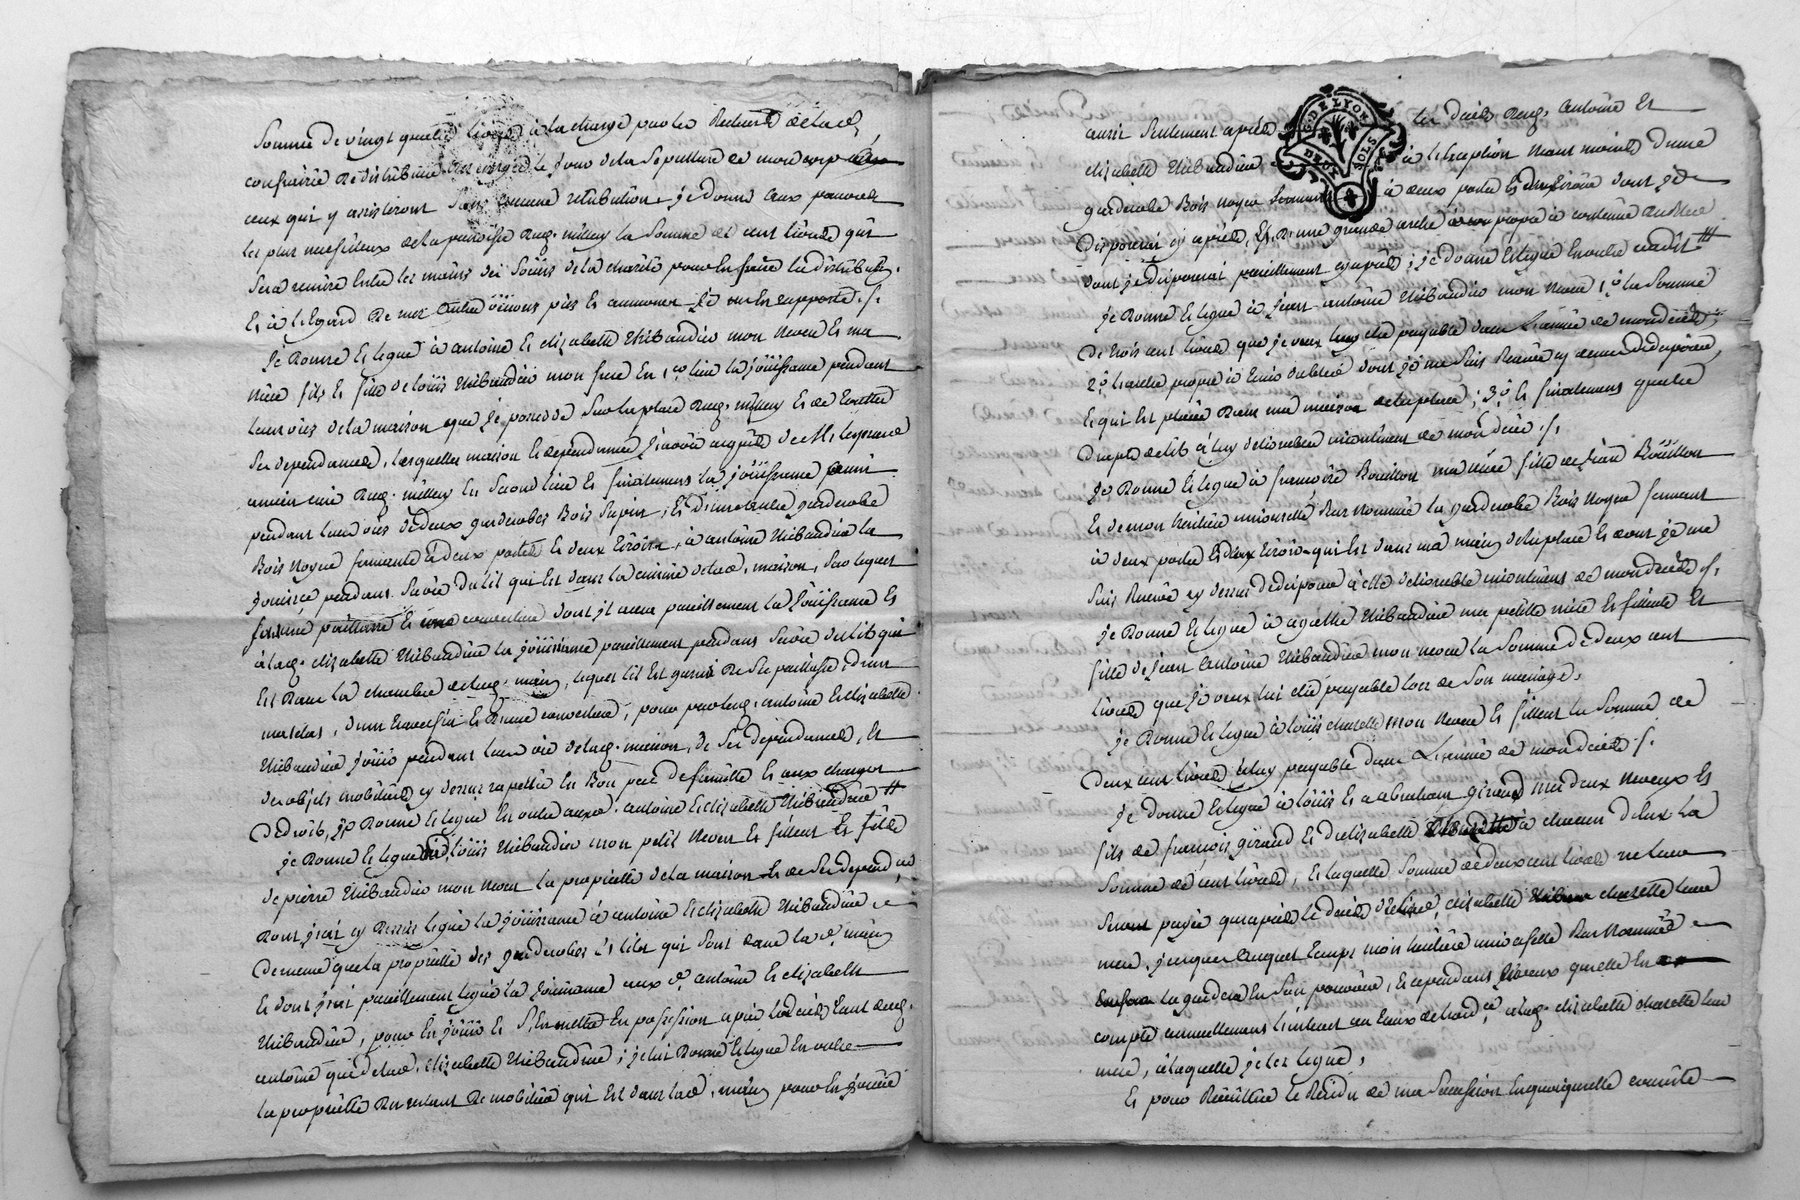 Somme de vingt quatre livres à la charge par les Recteurs de lad.
confrairie de distribuer un cierge le jour de la Sepulture de mon corps
ceux qui y assisteront Sans aucune rétribution. je donne aux pauvres
les plus necessiteux de la paroisse dud. millery la Somme de cent livres qui
Sera remise entre les mains des Sœurs de la charité pour en faire la distribution.
Et à l'Egard de mes autres œuvres pies et aumones je m'en rapporte
Je donne et legue à antoine et elizabeth thibaudier mon neveu et ma
niece fils et fille de loüis thibaudier mon frere En 1.er lieu la joüissance pendant
leurs vies de la maison que je possede Sur la place dud. millery et de touttes
Ses dependances, lesquelles maison et dependances j'avois acquis de Mr
ancien curé dud. millery En Second lieu et finalement la joüissance
pendant leurs vies de deux garderobes Bois Sapin, et d'une autre garderobe
Bois Noyer fermante à deux portes et deux tiroirs, à antoine thibaudier la
jouisce pendant Sa vie du lit qui est dans la cuisine de lad. maison,
paillasse et une couverture dont il aura pareillement la joüissance Et
à lad. elizabeth thibaudier la joüissance pareillement pendant Sa vie du lit qui
est dans la chambre de lad. maison, lequel lit est garni de Sa paillasse, d'un
matelas, d'un traversin et d'une couverture, pour par led. antoine et elizabeth
thibaudier joüir pendant leur vie de lad. maison, de Ses dependances, et
des objets mobiliers cy dessus rapellés En Bon pere de famille et aux charges
de droit, je donne et legue en outre auxd. antoine et elizabeth thibaudier
je donne et legue à loüis thibaudier mon petit neveu et filleul et fils
de pierre thibaudier mon neveu la proprieté de la maison et de Ses dependces
dont j'ai cy dessus legué la joüissance à antoine et elizabeth thibaudier
De meme que la proprieté des garderobes et lits qui Sont dans lad. maison
et dont j'ai pareillement legué la joüissance auxd. antoine et elizabeth
thibaudier, pour En joüir et S'en mettre En possession après le décès tant dud.
antoine que de lad. elizabeth thibaudier; je lui donne et legue En outre
la proprieté du restant de mobilier qui est dans lad. maison pour En joüir
aussi Seulement après les décès dud. antoine et
elizabeth thibaudier à l'exception néant moins d'une
garderobe Bois noyer fermante à deux portes et deux tiroirs dont je
disposerai cy après, et d'une grande arche propre à contenir du bled
dont je disposerai pareillement cy après; je donne et legue En outre
Je donne et legue à jean antoine thibaudier mon neveu 1.º la Somme
De trois cent livres que je veux luy etre payable dans l'année de mon décès
2.º l'arche propre à tenir du bled dont je me Suis Reservé cy devant de disposer,
et qui est placée dans ma maison de la place; 3.º et finalement quatre
draps de lit à luy delivrables incontinent de mon décès
Je donne et legue à francoise Boüillon ma niece fille de jean Boüillon
et de mon heritiere universelle Bas Nommée la garderobe Bois Noyer fermant
à deux portes et deux tiroirs qui est dans ma maison de la place et dont je me
Suis Reservé cy dessus de disposer à elle delivrable incontinent de mon décès
je donne et legue à agathe thibaudier ma petitte niece et filleule et
fille de jean antoine thibaudier mon neveu la Somme de deux cent
livres que je veux lui etre payable lors de Son mariage,
je donne et legue à loüis charette mon neveu et filleul la Somme de
Deux cent livres à luy payable dans l'année de mon décès
Je donne et legue à loüis et abraham giraud mes deux neveux et
fils de francois giraud et d'elizabeth à chacun d'eux la
Somme de cent livres, et laquelle Somme de deux cent livres ne leur
Seront payés qu'après le decès d'elizabeth charette leur
mere, jusques auquel temps mon heritiere universelle Bas Nommée
la gardera En Son pouvoir, et cependant je veux qu'elle En
compte annuellement l'interet au taux de lad. elizabeth charette leur
mere, à laquelle je les legue,
Et pour Recüeillir le Residu de ma Succession En quoi qu'elle consiste
G. DE LYON
DEUX SOLS